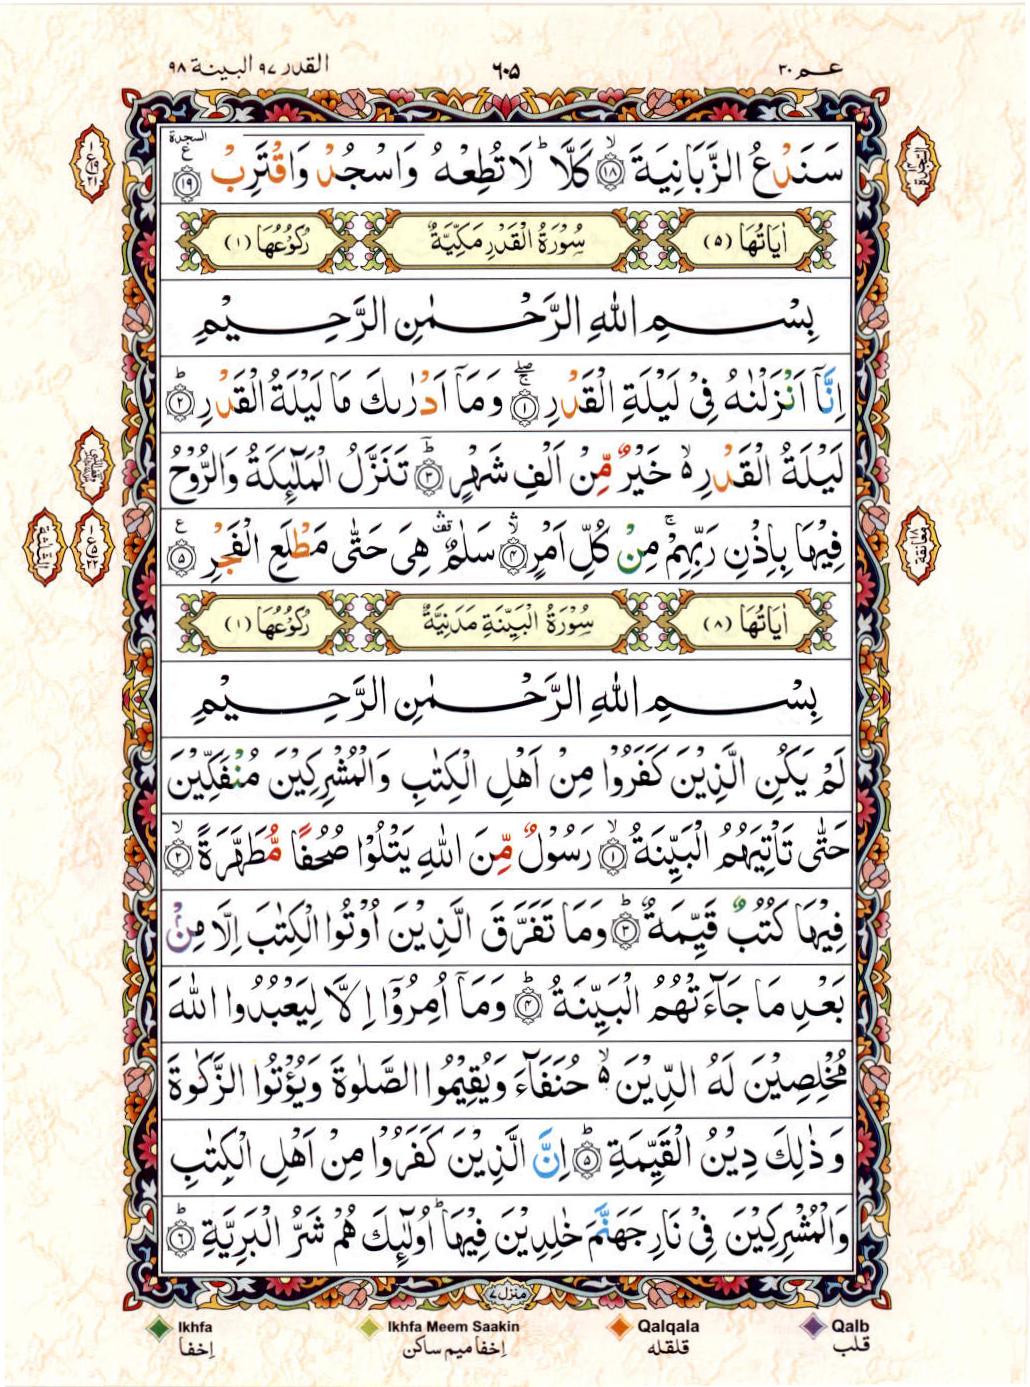 عم ٣٠ ٦٠٥ القدر ٩٧ البينة ٩٨
سَنَدْعُ الزَّبَانِيَةَ ۙ﴿١٨﴾ كَلَّا ؕ لَا تُطِعْهُ وَاسْجُدْ وَاقْتَرِبْ ﴿١٩﴾ السجدة ع
اٰيَاتُهَا (٥) سُوْرَةُ الْقَدْرِ مَكِّيَّةٌ رُكُوْعُهَا (١)
بِسْمِ اللّٰهِ الرَّحْمٰنِ الرَّحِيْمِ
اِنَّاۤ اَنْزَلْنٰهُ فِيْ لَيْلَةِ الْقَدْرِ ﴿١﴾ وَمَاۤ اَدْرٰىكَ مَا لَيْلَةُ الْقَدْرِ ؕ﴿٢﴾
لَيْلَةُ الْقَدْرِ ۙ۬ خَيْرٌ مِّنْ اَلْفِ شَهْرٍ ؕ﴿٣﴾ تَنَزَّلُ الْمَلٰٓئِكَةُ وَالرُّوْحُ
فِيْهَا بِاِذْنِ رَبِّهِمْ ۚ مِنْ كُلِّ اَمْرٍ ۛ﴿٤﴾ سَلٰمٌ ۛ هِيَ حَتّٰى مَطْلَعِ الْفَجْرِ ﴿٥﴾ ع
اٰيَاتُهَا (٨) سُوْرَةُ الْبَيِّنَةِ مَدَنِيَّةٌ رُكُوْعُهَا (١)
بِسْمِ اللّٰهِ الرَّحْمٰنِ الرَّحِيْمِ
لَمْ يَكُنِ الَّذِيْنَ كَفَرُوْا مِنْ اَهْلِ الْكِتٰبِ وَالْمُشْرِكِيْنَ مُنْفَكِّيْنَ
حَتّٰى تَاْتِيَهُمُ الْبَيِّنَةُ ۙ﴿١﴾ رَسُوْلٌ مِّنَ اللّٰهِ يَتْلُوْا صُحُفًا مُّطَهَّرَةً ۙ﴿٢﴾
فِيْهَا كُتُبٌ قَيِّمَةٌ ؕ﴿٣﴾ وَمَا تَفَرَّقَ الَّذِيْنَ اُوْتُوا الْكِتٰبَ اِلَّا مِنْۢ
بَعْدِ مَا جَآءَتْهُمُ الْبَيِّنَةُ ؕ﴿٤﴾ وَمَاۤ اُمِرُوْۤا اِلَّا لِيَعْبُدُوا اللّٰهَ
مُخْلِصِيْنَ لَهُ الدِّيْنَ ۙ۬ حُنَفَآءَ وَيُقِيْمُوا الصَّلٰوةَ وَيُؤْتُوا الزَّكٰوةَ
وَذٰلِكَ دِيْنُ الْقَيِّمَةِ ؕ﴿٥﴾ اِنَّ الَّذِيْنَ كَفَرُوْا مِنْ اَهْلِ الْكِتٰبِ
وَالْمُشْرِكِيْنَ فِيْ نَارِ جَهَنَّمَ خٰلِدِيْنَ فِيْهَا ؕ اُولٰٓئِكَ هُمْ شَرُّ الْبَرِيَّةِ ؕ﴿٦﴾
منزل ٧
Ikhfa Ikhfa Meem Saakin Qalqala Qalb
اِخفا اِخفا میم ساکن قلقلہ قلب